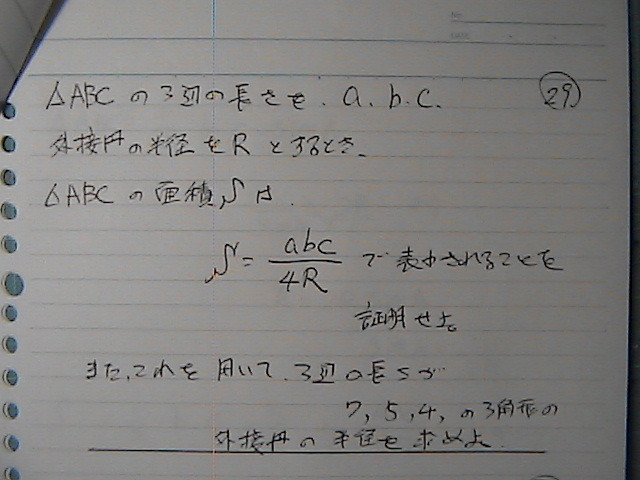 △ABCの3辺の長さを. a. b. c. ㉙
外接円の半径をRとするとき、
△ABCの面積Sは.
S = abc/4R で表わされることを
証明せよ。
また、これを用いて、3辺の長さが
7, 5, 4, の3角形の
外接円の半径を求めよ.